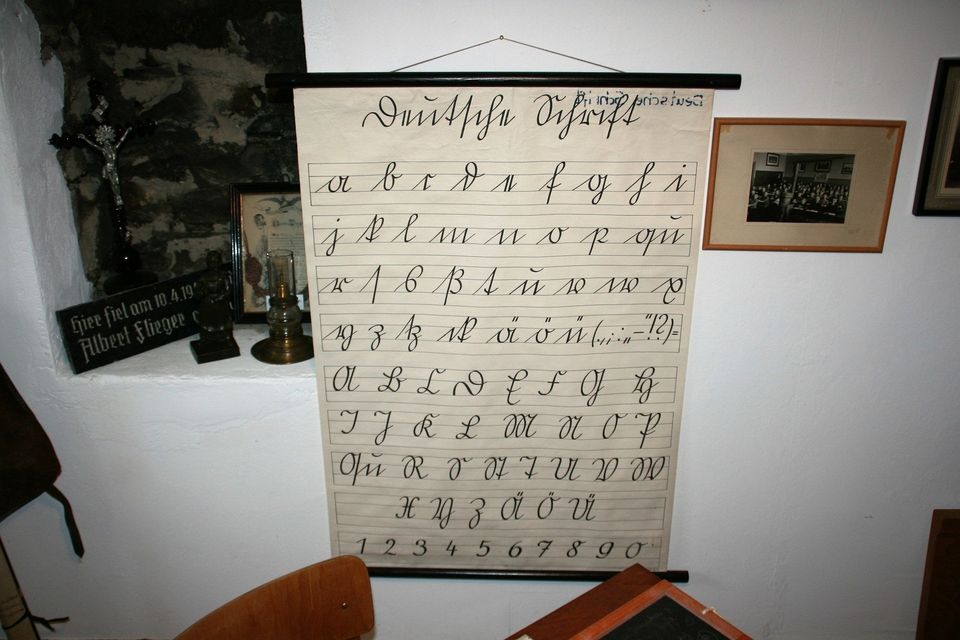 Deutsche Schrift
Deutsche Schrift
a b c d e f g h i
j k l m n o p qu
r ſ s ß t u v w x
y z tz ck ä ö ü (.,;:„–"!?)=
A B C D E F G H
I J K L M N O P
Qu R S St T U V W
X Y Z Ä Ö Ü
1 2 3 4 5 6 7 8 9 0
Hier fiel am 10.4.19
Albert Flieger